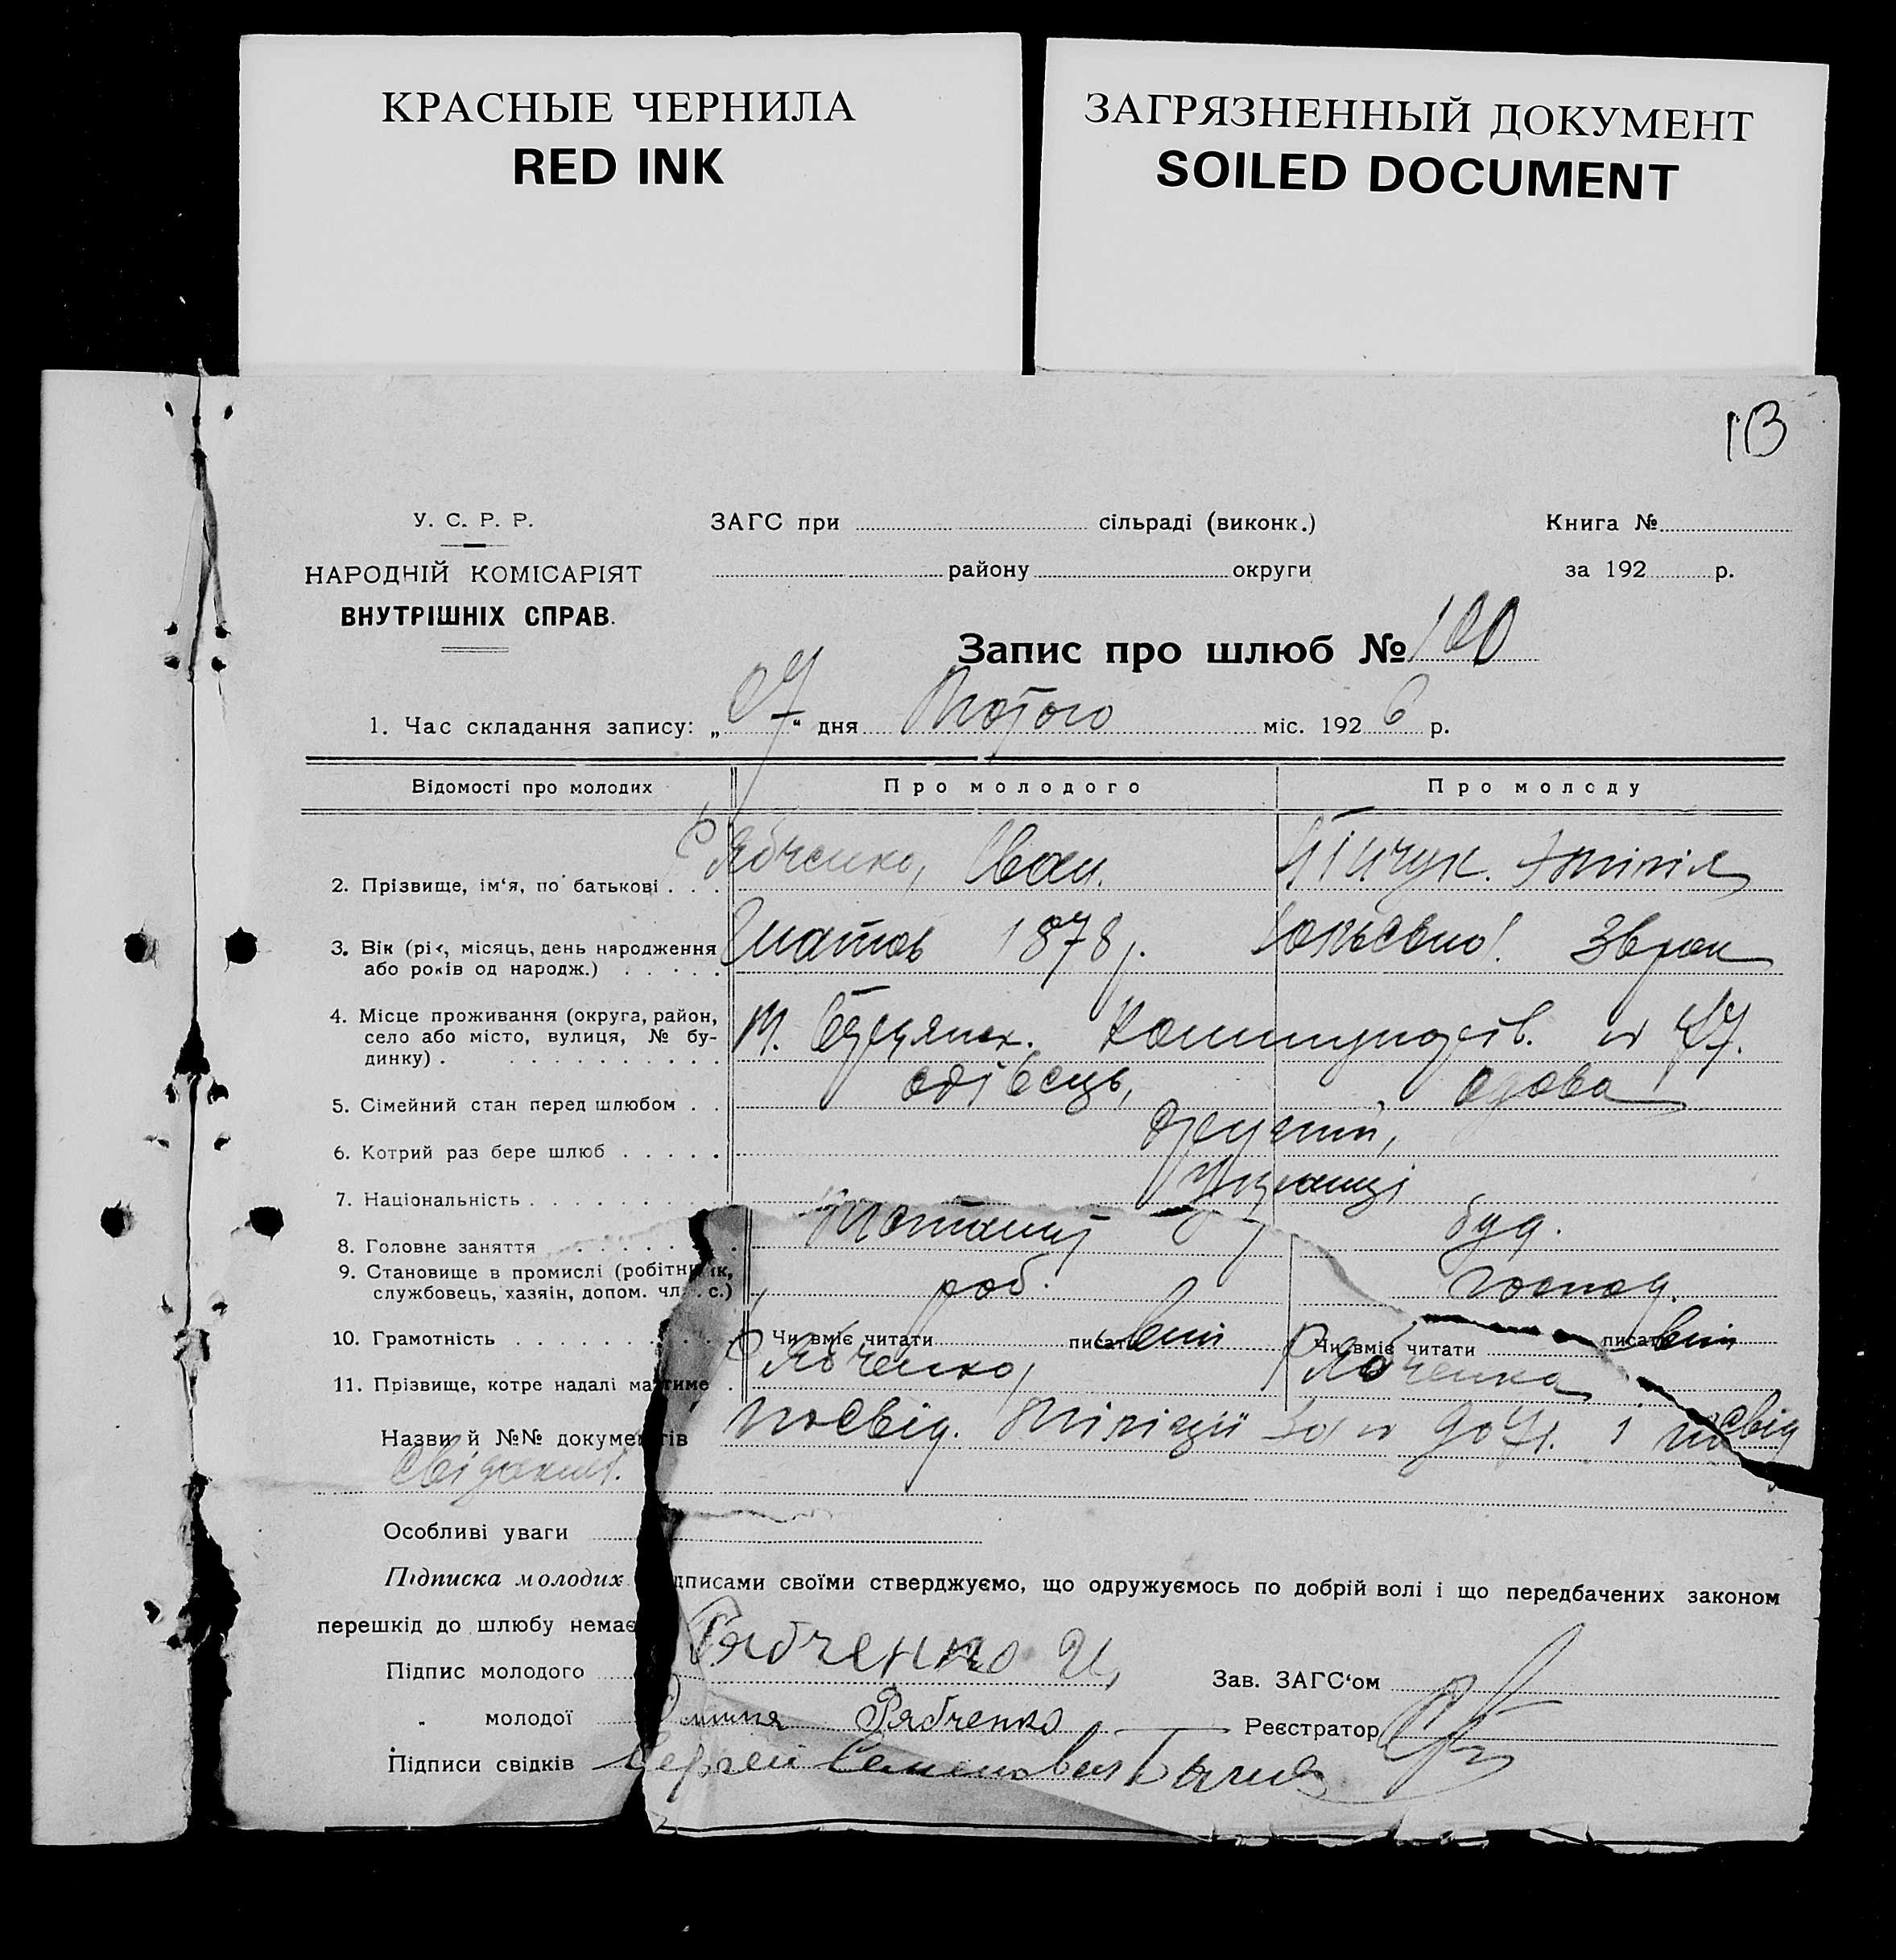 КРАСНЫЕ ЧЕРНИЛА
RED INK
ЗАГРЯЗНЕННЫЙ ДОКУМЕНТ
SOILED DOCUMENT
У. С. Р. Р.
НАРОДНІЙ КОМІСАРІЯТ
ВНУТРІШНІХ СПРАВ.
ЗАГС при сільраді (виконк.)
району округи
Книга №
за 192 р.
Запис про шлюб № 100
1. Час складання запису: „ “ дня Лютого міс. 192 6 р.
Відомості про молодих Про молодого Про молоду
2. Прізвище, ім‘я, по батькові . . . Рябченко, Іван.
3. Вік (рік, місяць, день народження 1878 р.
або років од народж.) . . . . .
4. Місце проживання (округа, район, М.
село або місто, вулиця, № бу-
динку) . . . . . . . . . . .
5. Сімейний стан перед шлюбом . . вдівець, вдова
6. Котрий раз бере шлюб . . . . . другий,
7. Національність . . . . . . . українці
8. Головне заняття . . . . . .
9. Становище в промислі (робітник, роб. господ.
службовець, хазяін, допом. чл. с.)
10. Грамотність . . . . . . Чи вміє читати писати вміє Чи вміє читати писати вміє
11. Прізвище, котре надалі матиме . Рябченко, Рябченко
Назви й №№ документів посвід. міліції і посвід
Особливі уваги
Підписка молодих дписами своїми стверджуємо, що одружуємось по добрій волі і що передбачених законом
перешкід до шлюбу немає
Підпис молодого Рябченко И, Зав. ЗАГС‘ом
„ молодої Рябченко Реєстратор
Підписи свідків Сергей Семенович